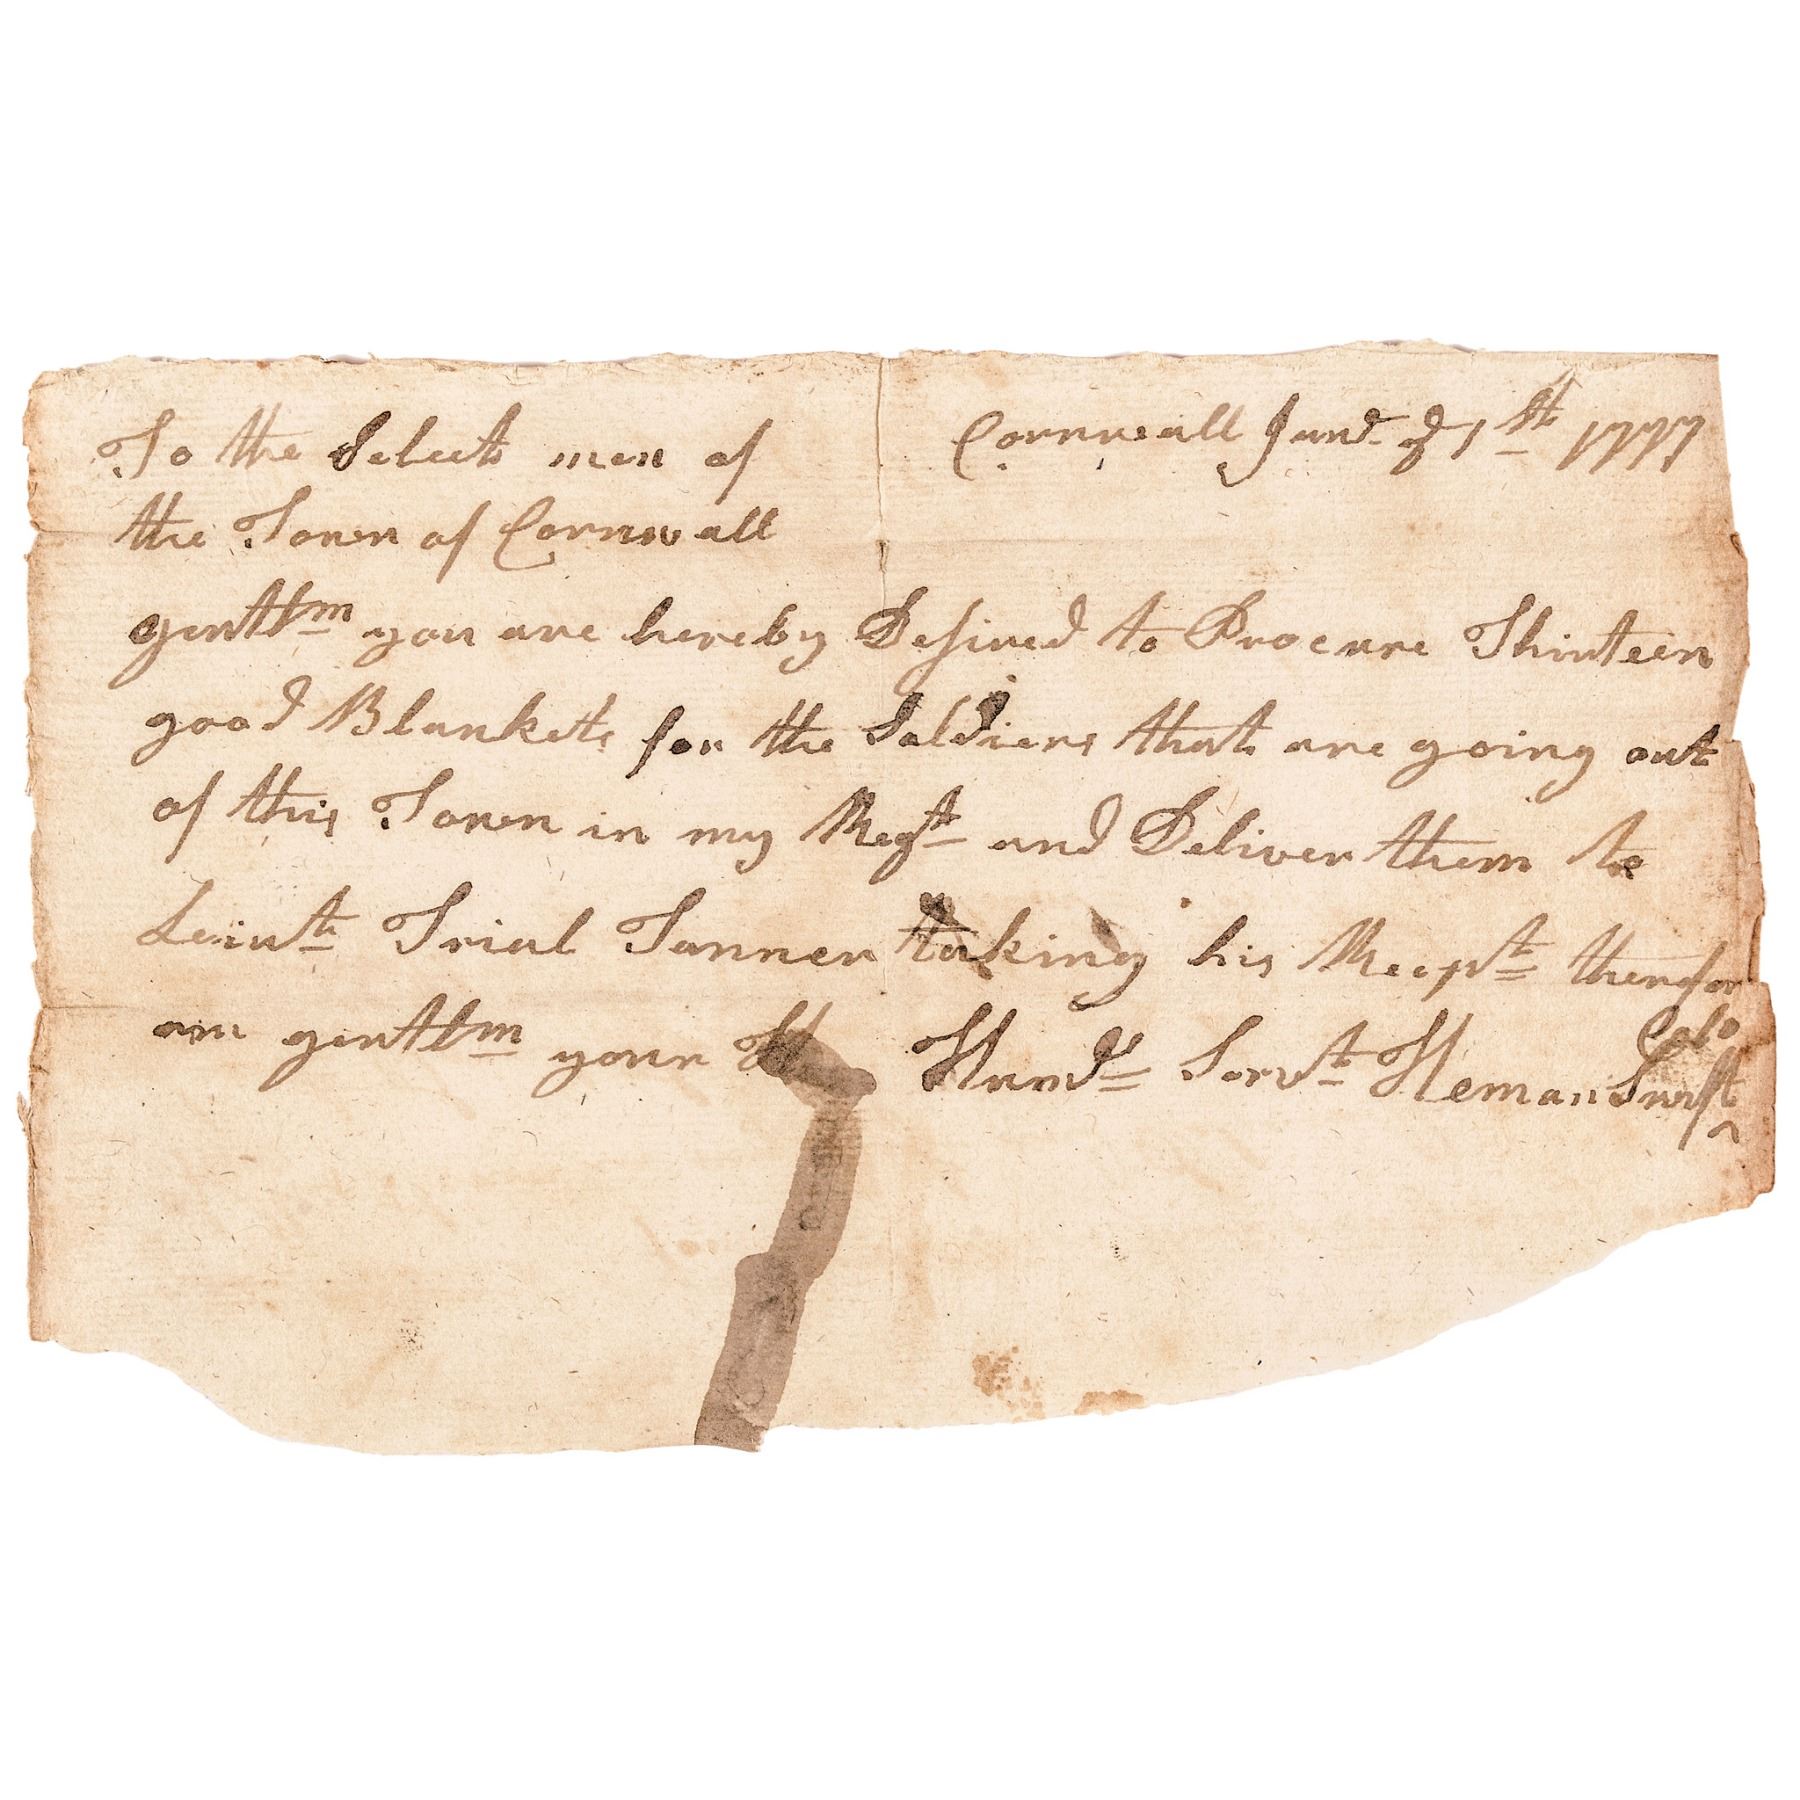 To the Select men of
Cornwall Jund. of 1st 1777
the Town of Cornwall
gentlm you are hereby Desired to Procure Thirteen
good Blankets for the Soldiers that are going out
of this Town in my Regt and Deliver them to
Leiut Trial Tanner taking his Recpt therefor
am gentlm your Humd Servt Heman Swift
Colo